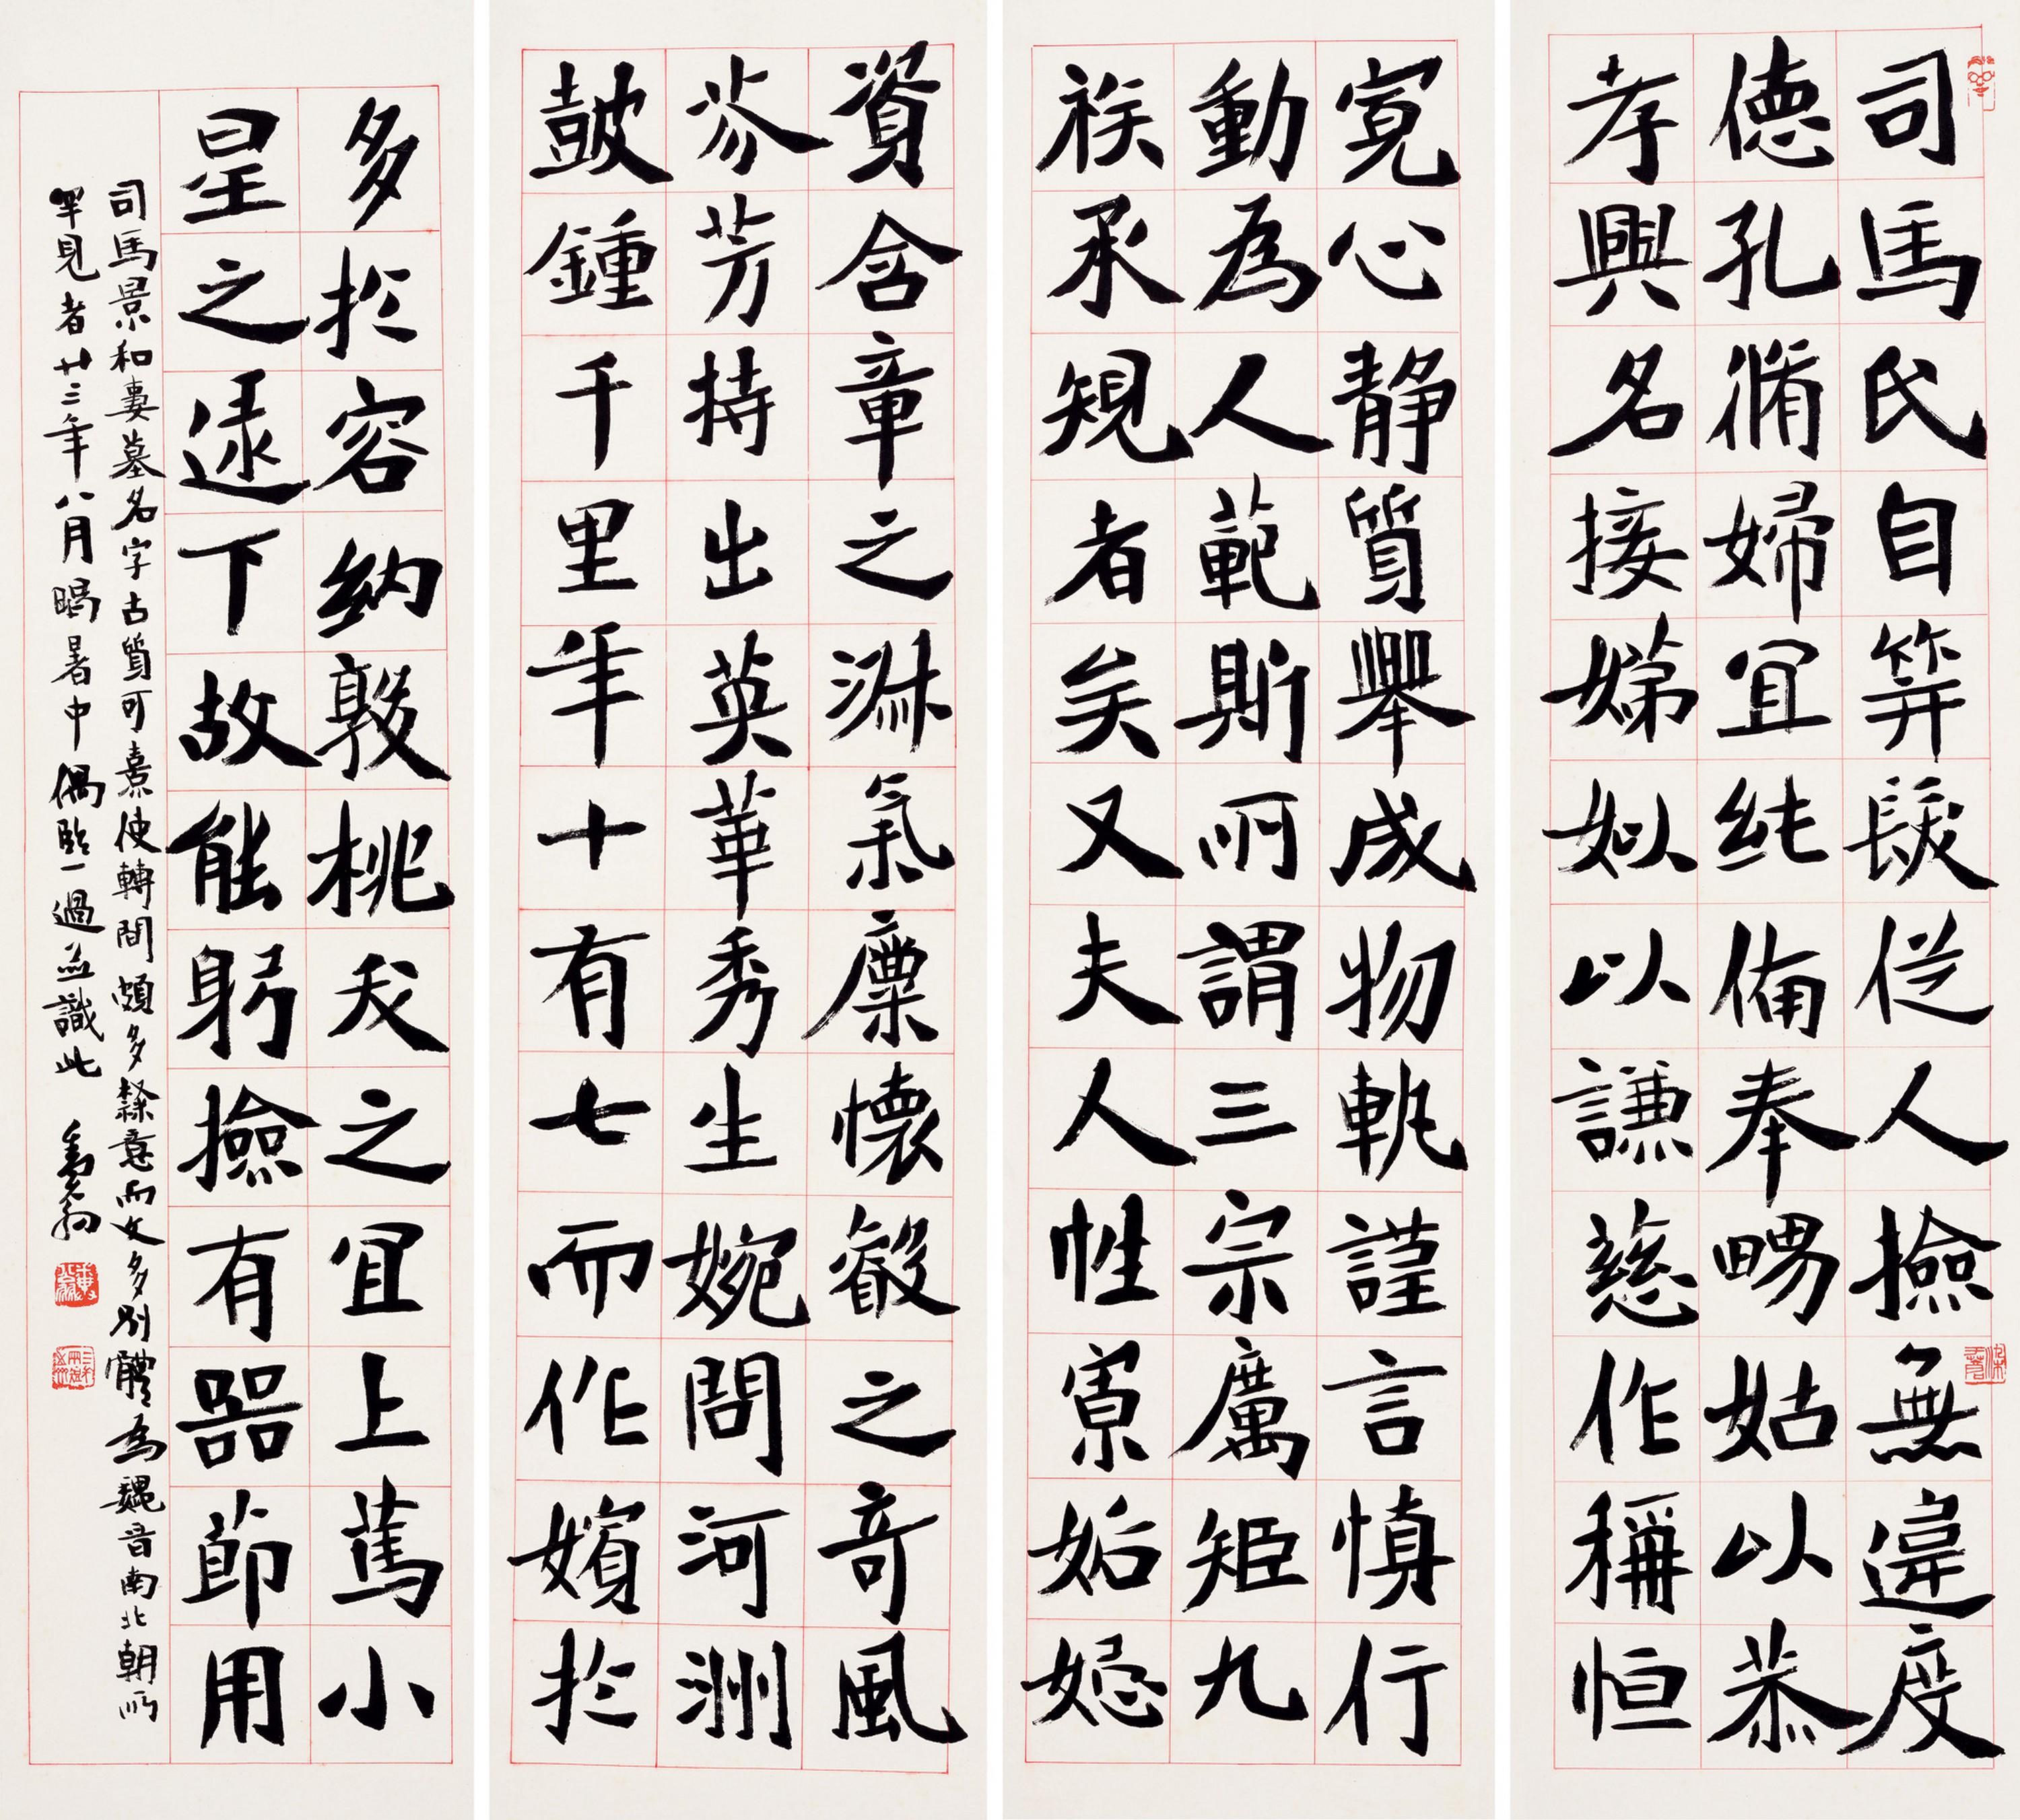 司馬氏自笄髮從人撿無違度
德孔脩婦宜純備奉甥姑以恭
孝興名接娣姒以謙慈作稱恒
寬心靜質舉成物軌謹言慎行
動為人範斯所謂三宗厲矩九
族承規者矣又夫人性寡妬忌
資含章之淋氣稟懷叡之奇風
芬芳特出英華秀生婉問河洲
鼓鍾千里年十有七而作嬪於
多於容納敦桃夭之宜上篤小
星之逮下故能躬撿有器節用
司馬景和妻墓名字古質可熹使轉間頗多隸意而文多別體為魏晉南北朝所
罕見者廿三年八月暍暑中偶臨一過並識此